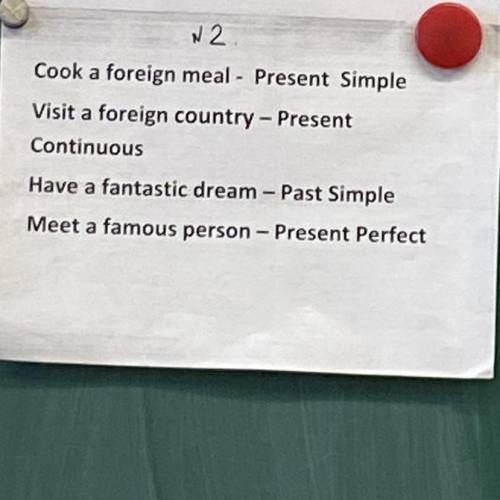 N 2.
Cook a foreign meal - Present Simple
Visit a foreign country – Present
Continuous
Have a fantastic dream – Past Simple
Meet a famous person – Present Perfect